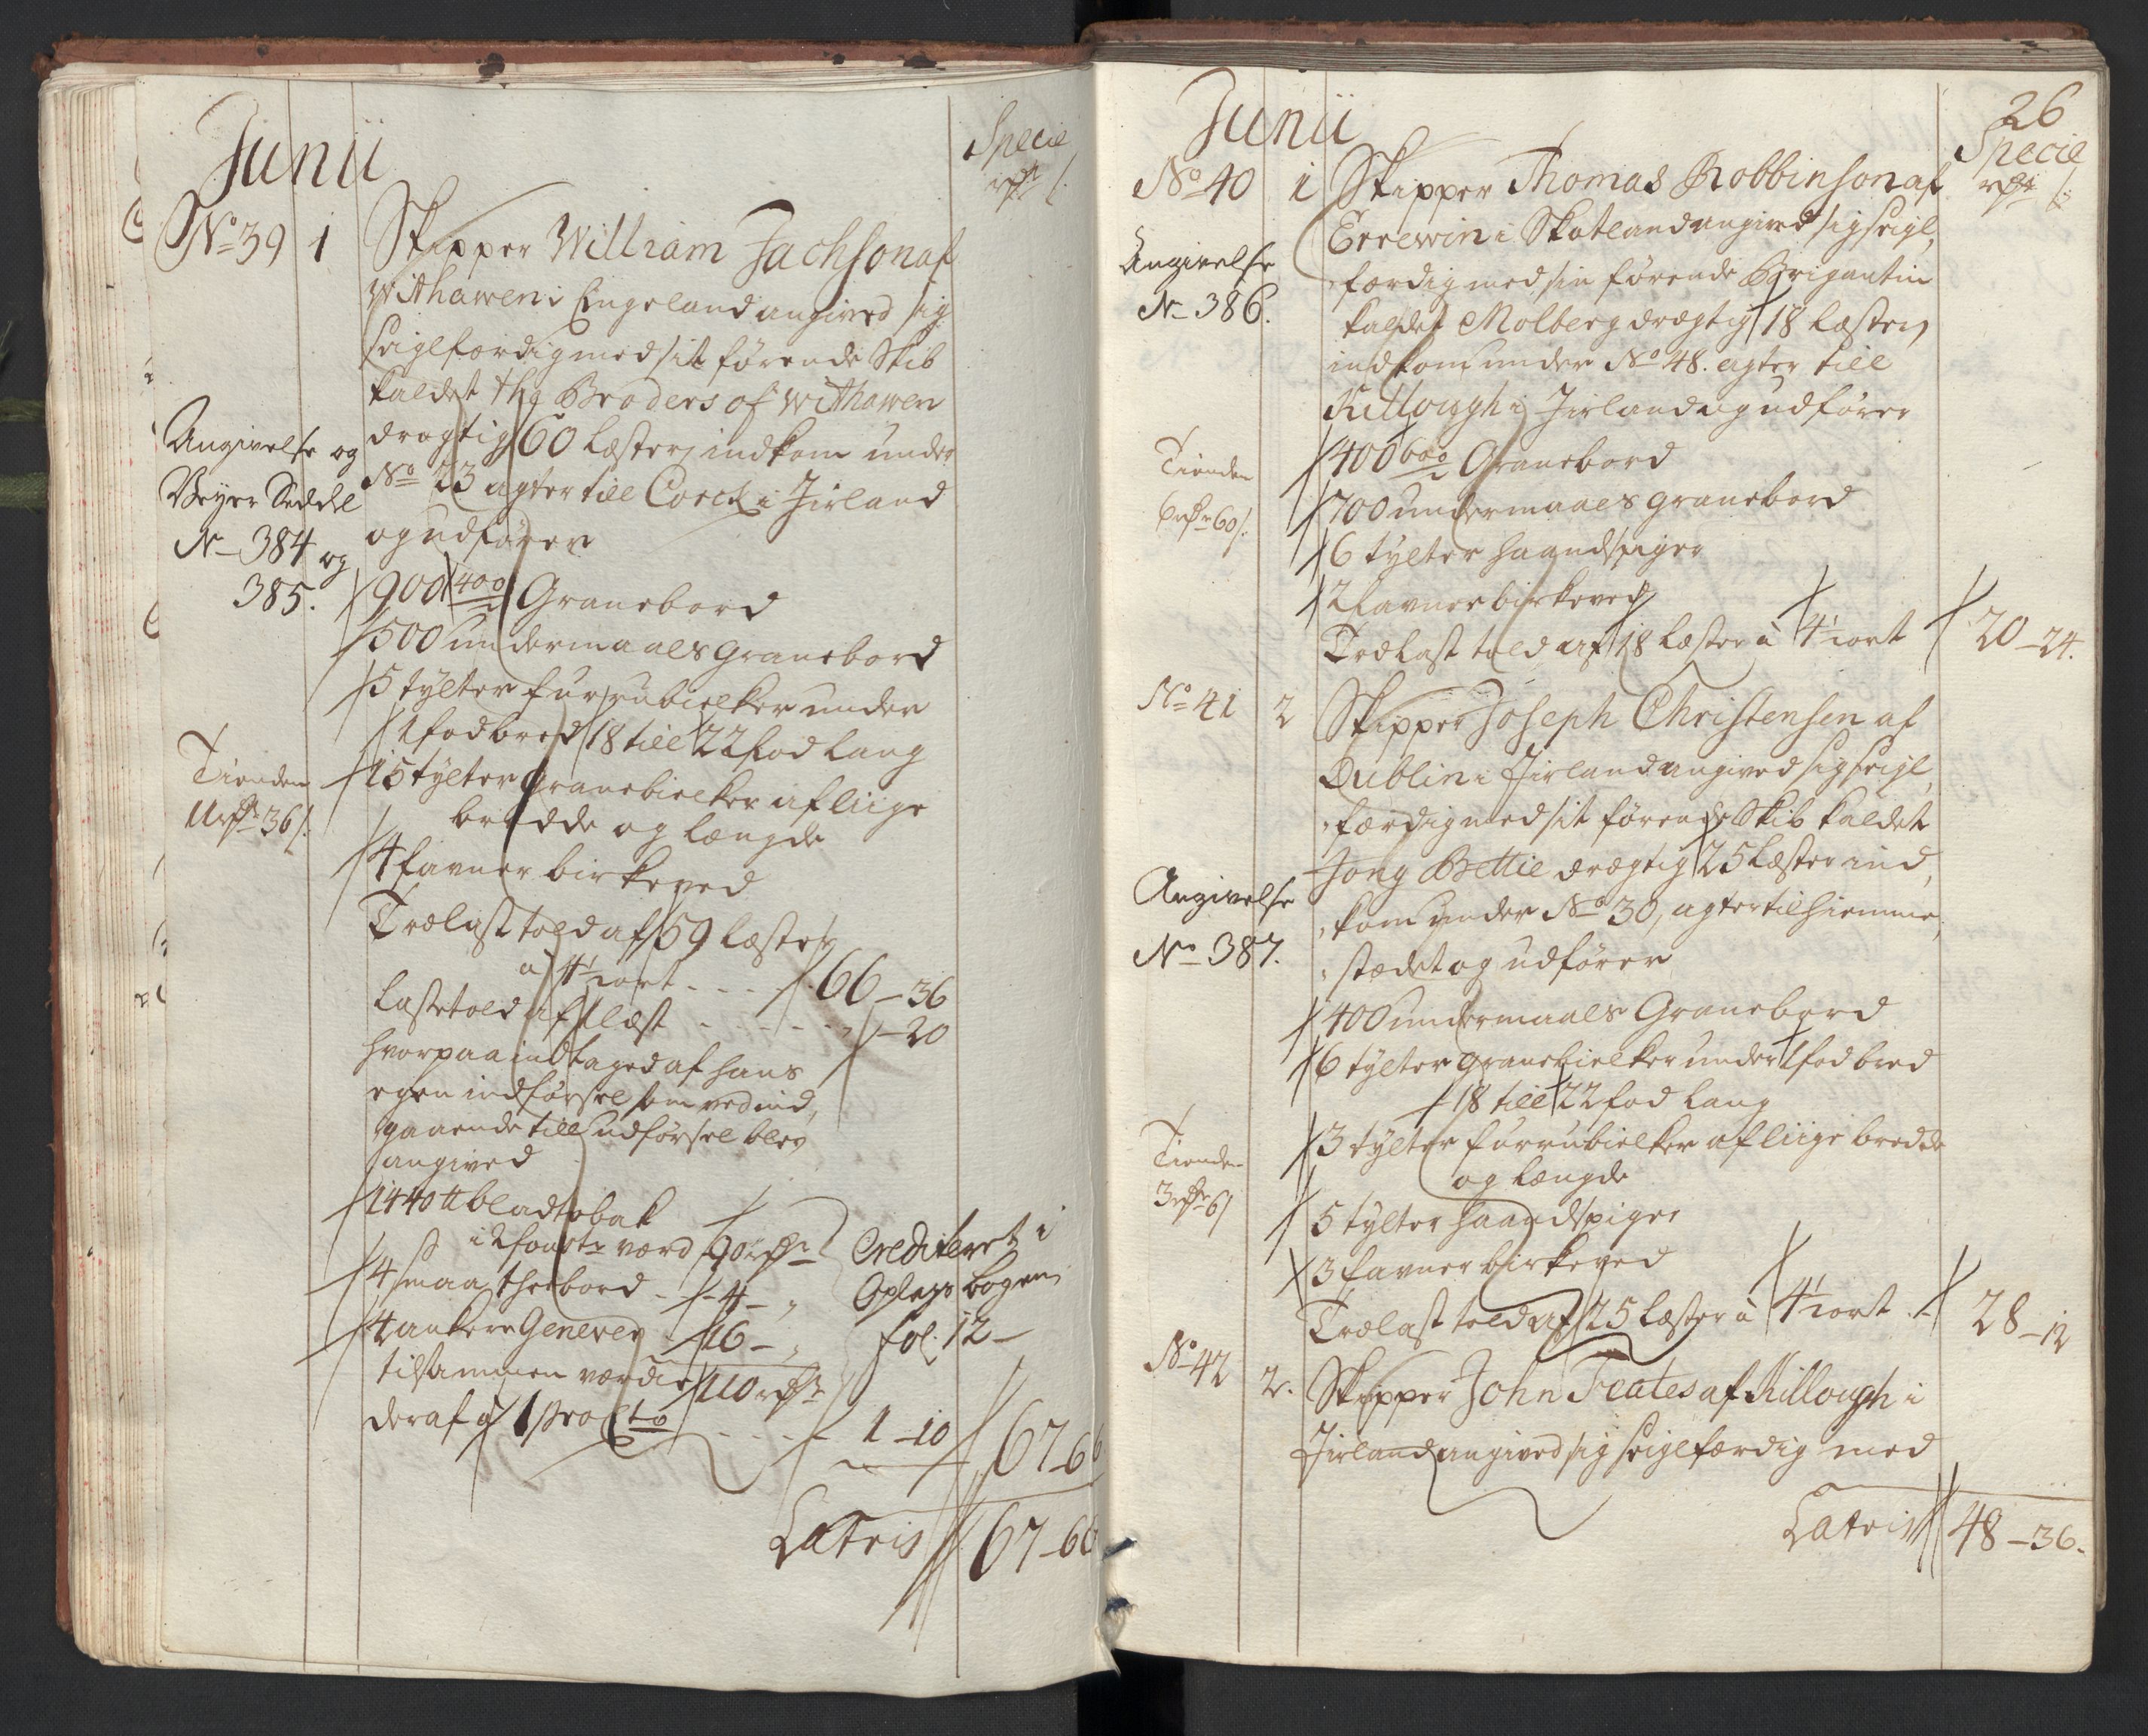 Junii
Specie
rdr ß.
No 39 1 Skipper William Jachson af
Withawen i Engeland angived sig
seiglfærdig med sit førende Skib
kaldet the Broders of Withawen
drægtig 60 Læster, indkom under
No 23 agter till Corck i Jirland
og udfører
Angivelse og
Veyer Seddel
No 384 og
385.
900 400 Granebord
500 undermaals granebord
5 tylter furrubielker under
1 fod bred 18 till 22 fod lang
15 tylter granebielker af liige
bredde og længde
Tienden
11 rdr 36 ß.
4 favner birkeved
Trælast told af 59 læster
a 4½ ort - - - 66 - 36
Lastetold af 1 læst - - - - - 20
hvorpaa indtaged af hans
egen indførsel som ved ind,
gaaende till udførsel blev
angived
1440 ℔ bladtobak
i 2 foust. værd 90 rdr
4 smaa theebord - - 4 - „
4 ankere Genever - 16 - „
Crediteret i
Oplags bogen
fol. 12 -
tilsammen værdie 110 rdr
deraf a 1 pro Cto - - - - 1 - 10 67 - 66
Latris 67 - 66
26
Junii
Specie
rdr ß
No 40 1 Skipper Thomas Robbinson af
Errewin i Skotland angived sig seigl,
færdig med sin førende Brigantin
kaldet Molberg drægtig 18 Læster,
indkom under No 48. agter till
Killough i Jirland og udfører
Angivelse
No 386.
400 600 Granebord
700 undermaals granebord
6 tylter haandspiger
2 favner birkeved
Tienden
6 rdr 60 ß.
Trælast told af 18 læster a 4½ ort 20 - 24.
No 41 2 Skipper Joseph Christensen af
Dublin i Jirland angived sig seigl,
færdig med sit førende Skib kaldet
Jong Bettie drægtig 25 Læster ind,
kom under No 30, agter til hiemme,
stædet og udfører
Angivelse
No 387.
400 undermaals Granebord
6 tylter granebielker under 1 fod bred
18 till 22 fod lang
3 tylter furrubielker af liige bredde
og længde
Tienden
3 rdr 6 ß
5 tylter haandspiger
3 favner birkeved
Trælast told af 25 Læster a 4½ ort - 28 - 12
No 42 2. Skipper John Teates af Killough i
Jirland angived sig seiglfærdig med
Latris 48 - 36.